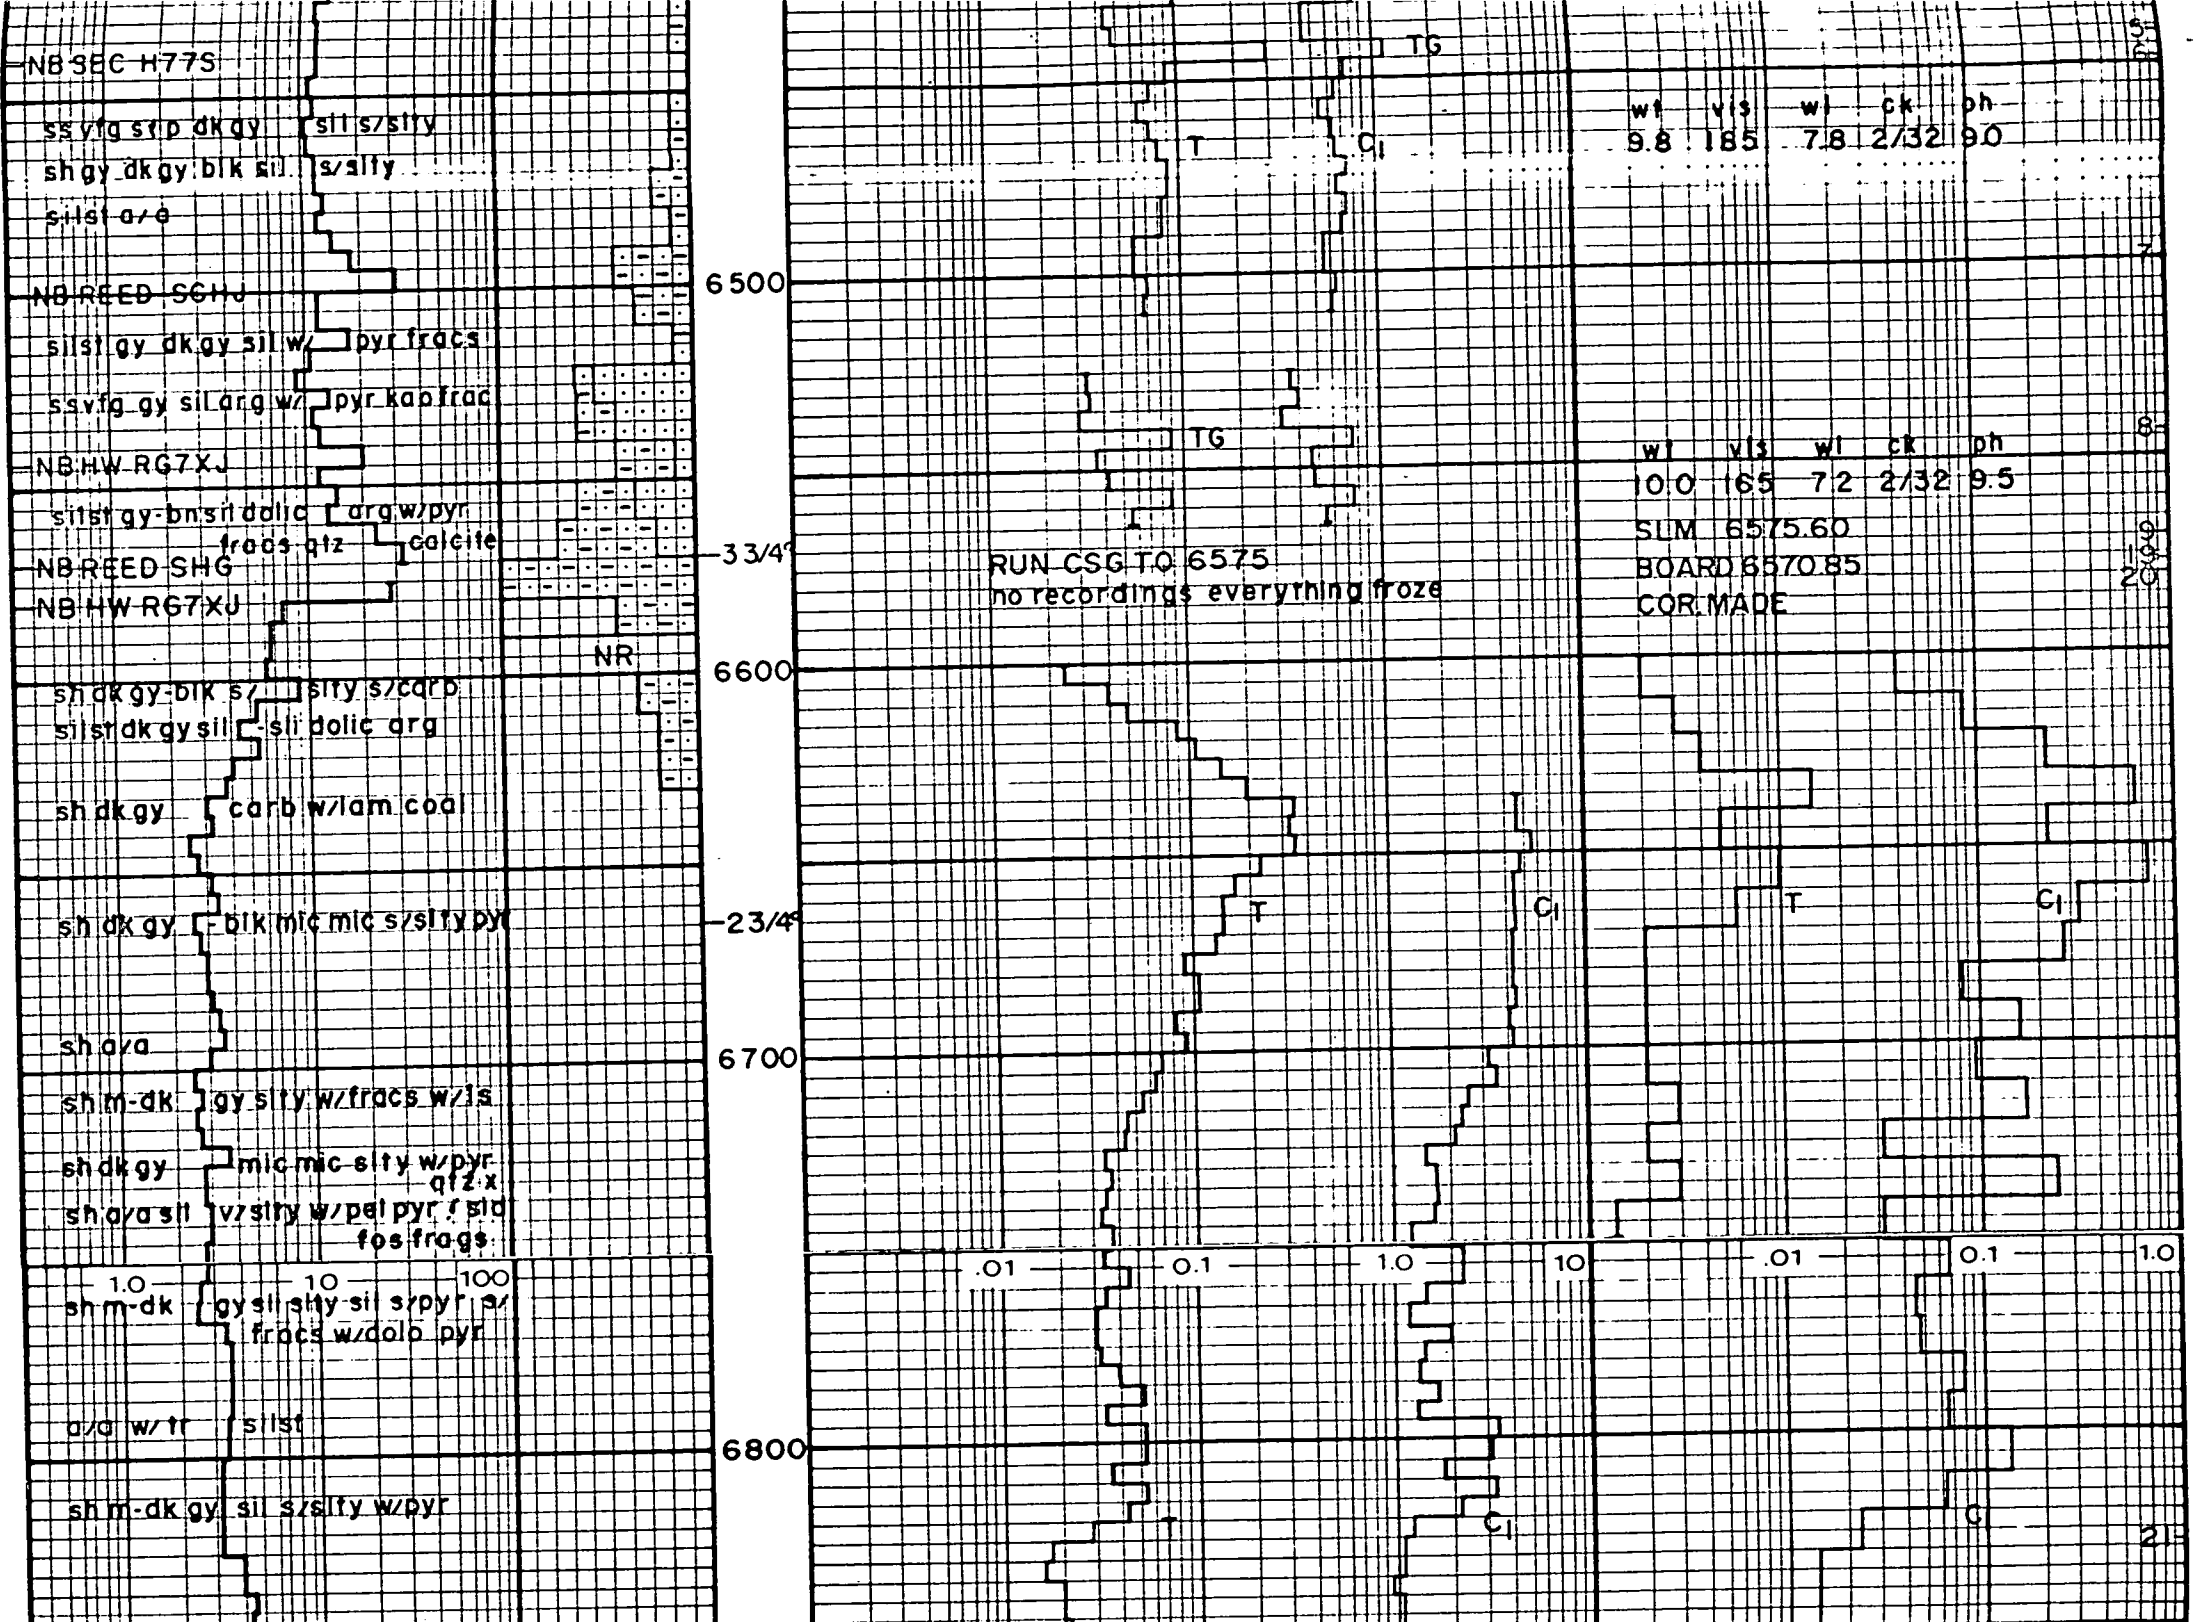 NB SEC H77S
ss vfg stp dkgy sil s/slty
sh gy dkgy blk sil s/slty
silst a/a
NB REED SGHJ
silst gy dkgy sil w/ pyr fracs
ss vfg gy sil arg w/ pyr kao frac
NB HW RG7XJ
silst gy-bn sil dolic arg w/pyr
fracs qtz calcite
NB REED SHG
NB HW RG7XJ
NR
sh dkgy-blk s/ slty s/carb
silst dk gy sil - sli dolic arg
sh dk gy carb w/lam coal
sh dk gy - blk mic mic s/slty pyr
sh a/a
sh m-dk gy slty w/fracs w/ls
sh dk gy mic mic slty w/pyr
qtz x
sh a/a sil v/slty w/pel pyr & sid
fos frags
1.0 10 100
sh m-dk gy sil slty sil s/pyr s/
fracs w/dolo pyr
a/a w/tr silst
sh m-dk gy sil s/slty w/pyr
6500
3 3/4°
6600
2 3/4°
6700
6800
TG
T C1
TG
RUN CSG TO 6575
no recordings everything froze
T C1
.01 0.1 1.0 10
T C1
5
6
wt vis wl ck ph
9.8 185 7.8 2/32 9.0
7
8
wt vis wl ck ph
10.0 165 7.2 2/32 9.5
SLM 6575.60
BOARD 6570.85
COR. MADE
9
20
T C1
.01 0.1 1.0
C
21